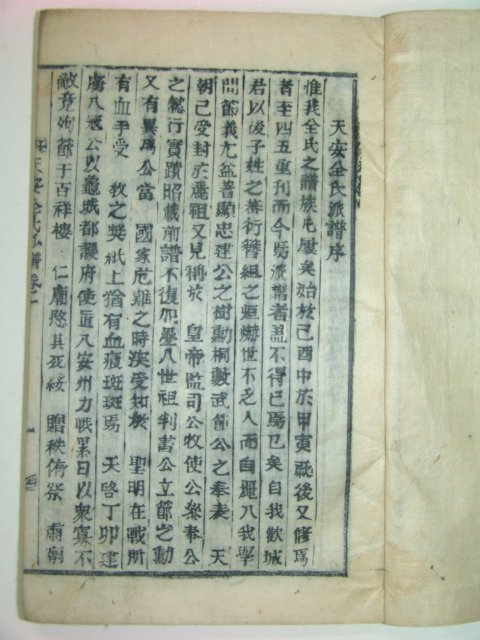 天安全氏派譜序
惟我全氏之譜族也屢矣始於己酉中於甲寅厥後又修焉
者至四五重刊而今爲派譜者蓋不得已焉已矣自我歡城
君以後子姓之蕃衍簪組之煊爀世不乏人而自麗入我學
問節義尤益著顯忠建公之樹勳桐藪武節公之奉表 天
朝已受封於爲祖又見稱於 皇帝監司公牧使公參奉公
之懿行實蹟昭載前譜不復加疊八世祖判書公立節之勳
又有異焉公當 國家危難之時深受知於 聖明在戰所
有血手受 教之奬紙上猶有血痕斑斑焉 天啓丁卯建
虜入寇公以龜城都護府使直入安州力戰累日以衆寡不
敵竟殉節于百祥樓 仁廟愍其死綏 贈秩侑祭 肅廟
天安全氏派譜卷一